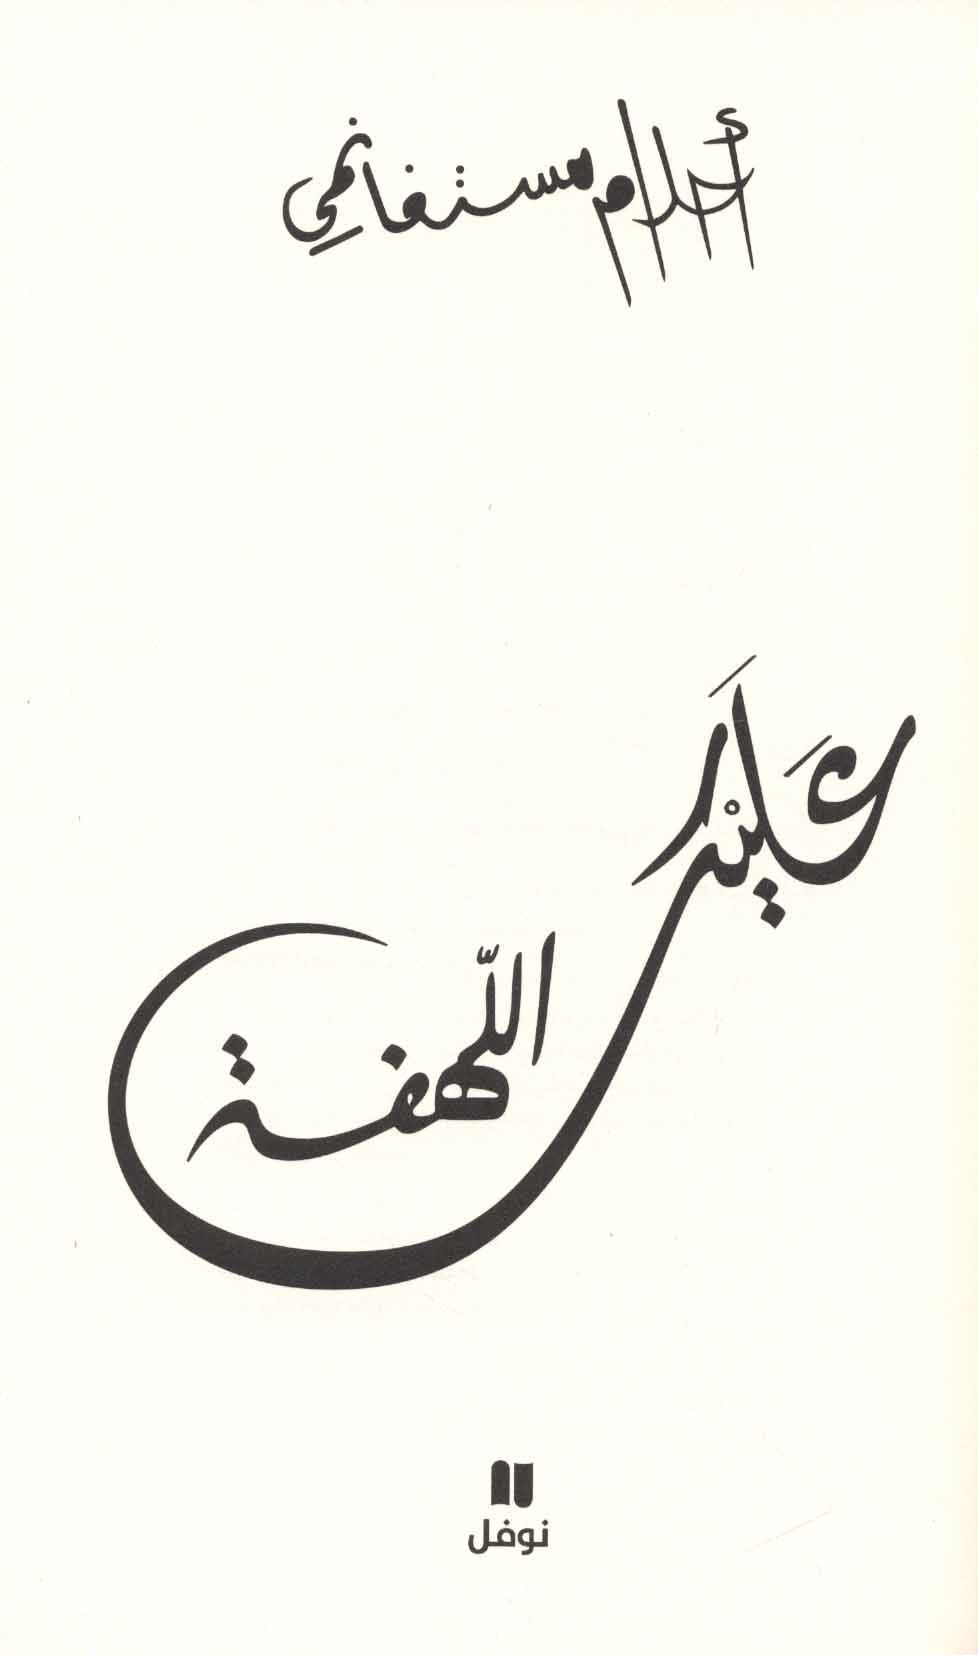 أحلام مستغانمي
عَلَيْكَ
اللّهفة
نوفل